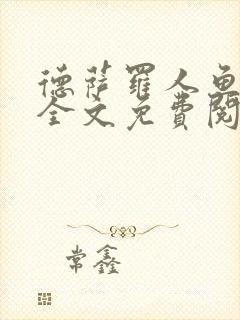 德萨罗人鱼
全文免费阅
常鑫